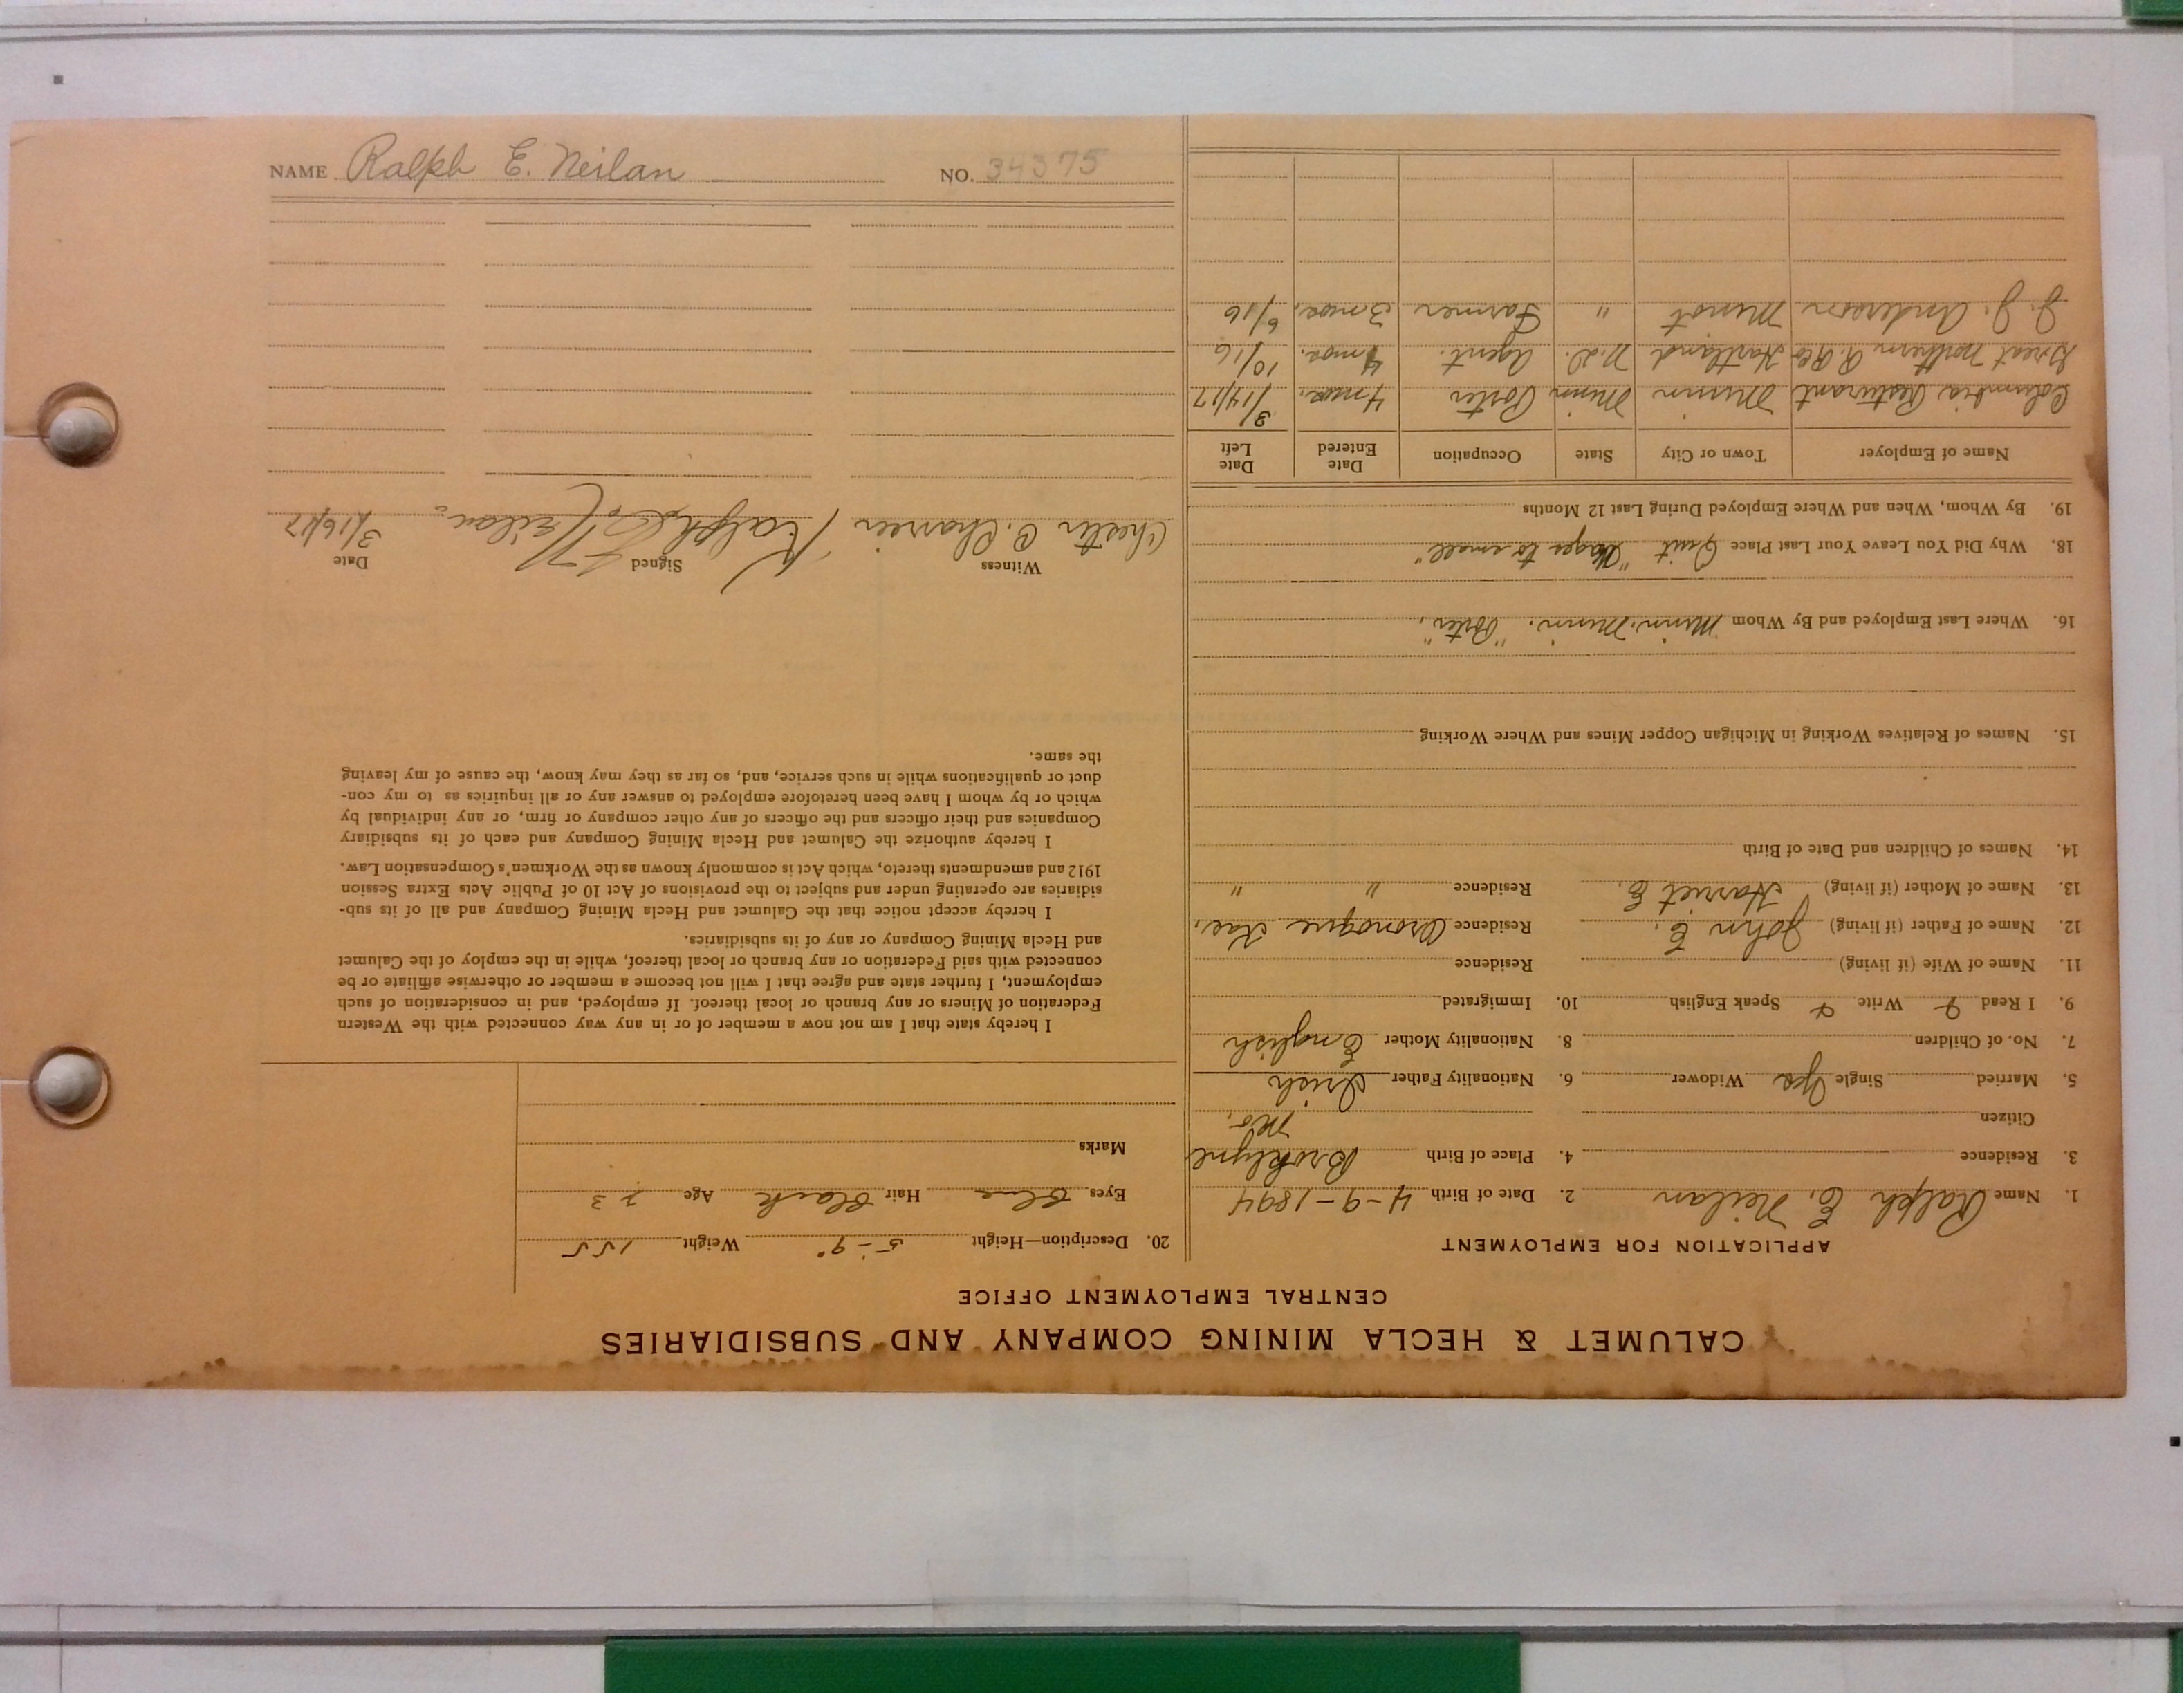 NAME Ralph E. Neilan NO. 34375
CALUMET & HECLA MINING COMPANY AND SUBSIDIARIES
CENTRAL EMPLOYMENT OFFICE
APPLICATION FOR EMPLOYMENT
1. Name Ralph E. Neilan 2. Date of Birth 4-9-1894
3. Residence 4. Place of Birth Broklyne
Citizen Mo.
5. Married Single Yes Widower 6. Nationality Father Irish
7. No. of Children 8. Nationality Mother English
9. I Read Write Speak English 10. Immigrated
11. Name of Wife (if living) Residence
12. Name of Father (if living) John E. Residence Oronoque Kas.
13. Name of Mother (if living) Harriet E. Residence " "
14. Names of Children and Date of Birth
15. Names of Relatives Working in Michigan Copper Mines and Where Working
16. Where Last Employed and By Whom Minn. Minn. "Porter"
18. Why Did You Leave Your Last Place Quit "Wages to small"
19. By Whom, When and Where Employed During Last 12 Months
Name of Employer Town or City State Occupation Date Entered Date Left
Columbia Resturant Minn Minn Porter 4 mos. 3/14/17
Great Northern R. R. Co Hartland N.D. Agent. 4 mos. 10/16
J. J. Anderson Minot " Farmer 3 mos. 6/16
20. Description—Height 5-9" Weight 155
Eyes Blue Hair Black Age 23
Marks
I hereby state that I am not now a member of or in any way connected with the Western
Federation of Miners or any branch or local thereof. If employed, and in consideration of such
employment, I further state and agree that I will not become a member or otherwise affiliate or be
connected with said Federation or any branch or local thereof, while in the employ of the Calumet
and Hecla Mining Company or any of its subsidiaries.
I hereby accept notice that the Calumet and Hecla Mining Company and all of its sub-
sidiaries are operating under and subject to the provisions of Act 10 of Public Acts Extra Session
1912 and amendments thereto, which Act is commonly known as the Workmen's Compensation Law.
I hereby authorize the Calumet and Hecla Mining Company and each of its subsidiary
Companies and their officers and the officers of any other company or firm, or any individual by
which or by whom I have been heretofore employed to answer any or all inquiries as to my con-
duct or qualifications while in such service, and, so far as they may know, the cause of my leaving
the same.
Witness Signed Date
Chester C. Ralph E. Neilan. 3/16/17